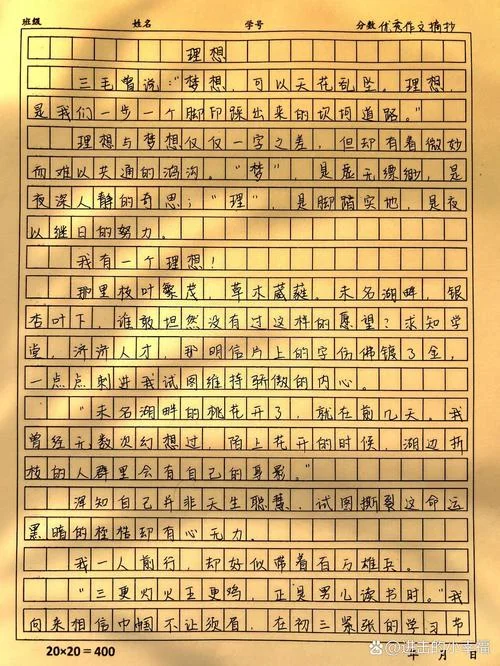 班级 姓名 学号 分数 优秀作文摘抄
理想
三毛曾说:“梦想,可以天花乱坠。理想,
是我们一步一个脚印踩出来的坎坷道路。”
理想与梦想仅仅一字之差,但却有着微妙
而难以共通的鸿沟。“梦”,是虚无缥缈,是
夜深人静的奇思;“理”,是脚踏实地,是夜
以继日的努力。
我有一个理想!
那里枝叶繁茂,草木葳蕤。未名湖畔,银
杏叶下,谁敢坦然没有过这样的愿望?求知学
堂,济济人才,那明信片上的字仿佛镀了金,
一点点刺进我试图维持骄傲的内心。
“未名湖畔的桃花开了,就在前几天。我
曾经无数次幻想过,陌上花开的时候,湖边折
枝的人群里会有自己的身影。”
深知自己并非天生聪慧,试图撕裂这命运
黑暗的桎梏却有心无力。
我一人前行,却好似带着百万雄兵。
“三更灯火五更鸡,正是男儿读书时。”我
向来相信巾帼不让须眉,在初三紧张的学习节
20×20=400 年 月 日
百家号/进击的小幸福